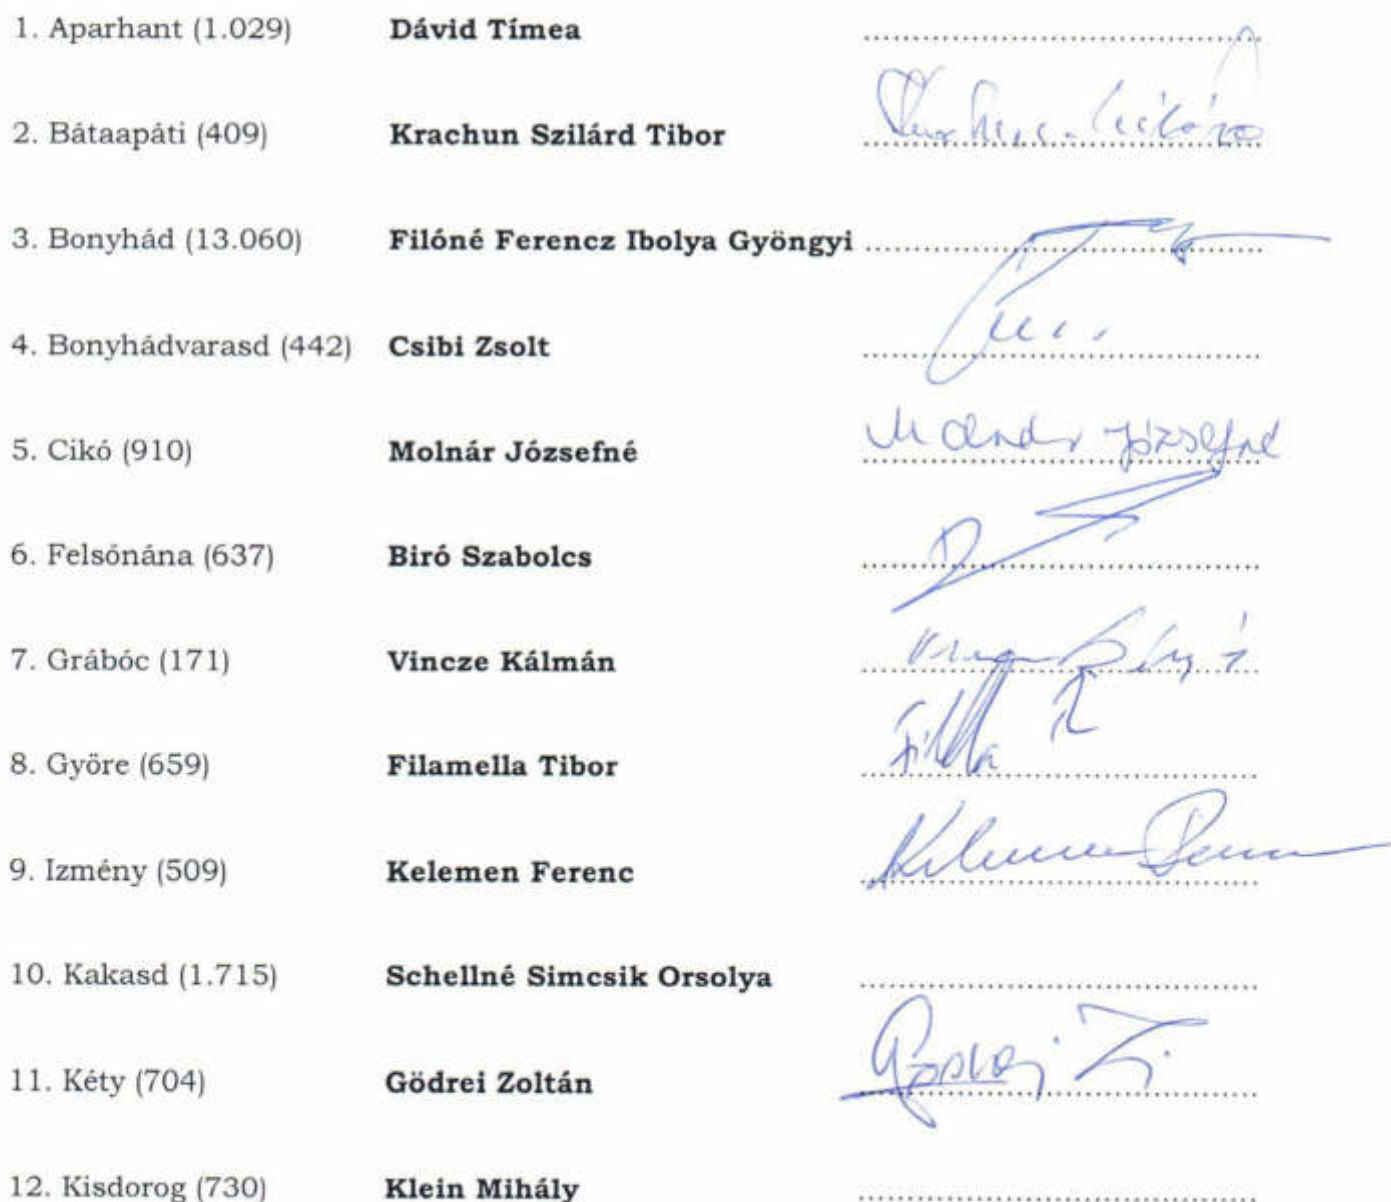 1. Aparhant (1.029) Dávid Tímea ........................................
2. Bátaapáti (409) Krachun Szilárd Tibor ........................................
3. Bonyhád (13.060) Filóné Ferencz Ibolya Gyöngyi ........................................
4. Bonyhádvarasd (442) Csibi Zsolt ........................................
5. Cikó (910) Molnár Józsefné Molnár Józsefné
6. Felsőnána (637) Biró Szabolcs ........................................
7. Grábóc (171) Vincze Kálmán ........................................
8. Györe (659) Filamella Tibor ........................................
9. Izmény (509) Kelemen Ferenc Kelemen Ferenc
10. Kakasd (1.715) Schellné Simcsik Orsolya ........................................
11. Kéty (704) Gödrei Zoltán ........................................
12. Kisdorog (730) Klein Mihály ........................................